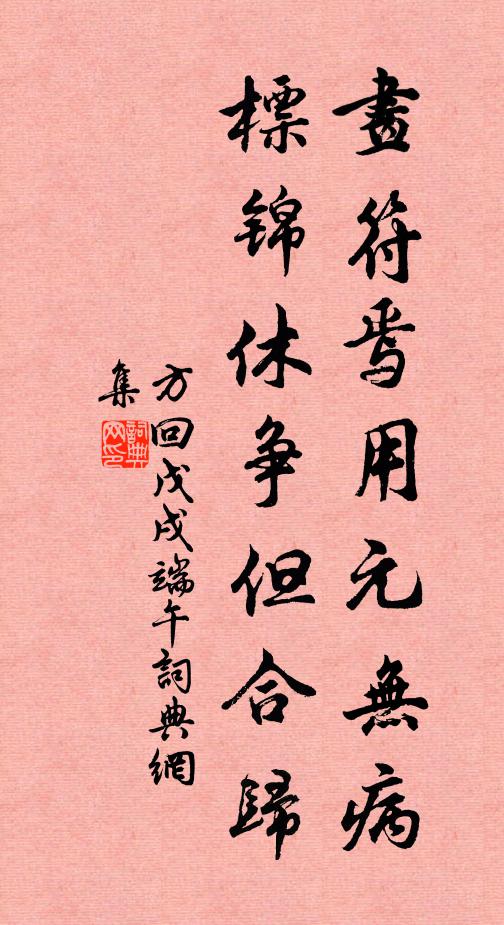 畫符焉用元無病
標錦休争但合歸
方回戊戌端午詞典網
集
詞典网印